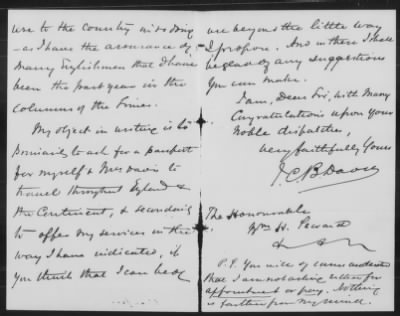 use to the Country in so doing
- as I have the assurance of
Many Englishmen that I have
been the past year in the
columns of the Times.
My object in writing is to
primarily to ask for a passport
for myself & Mrs Davis to
travel throughout England &
the Continent, & secondarily
to offer my services in the
way I have indicated, if
You think that I can be of
use beyond the little way
I propose. And in them I shall
be glad of any suggestions
You can make.
I am, Dear Sir, with Many
Congratulations upon your
Noble dispatches,
very faithfully Yours
J. C. B. Davis
The Honourable
Wm H. Seward
&c &c
P.S. You will of course understand
that I am not asking either for
appointment or pay. Nothing
is farther from my mind.